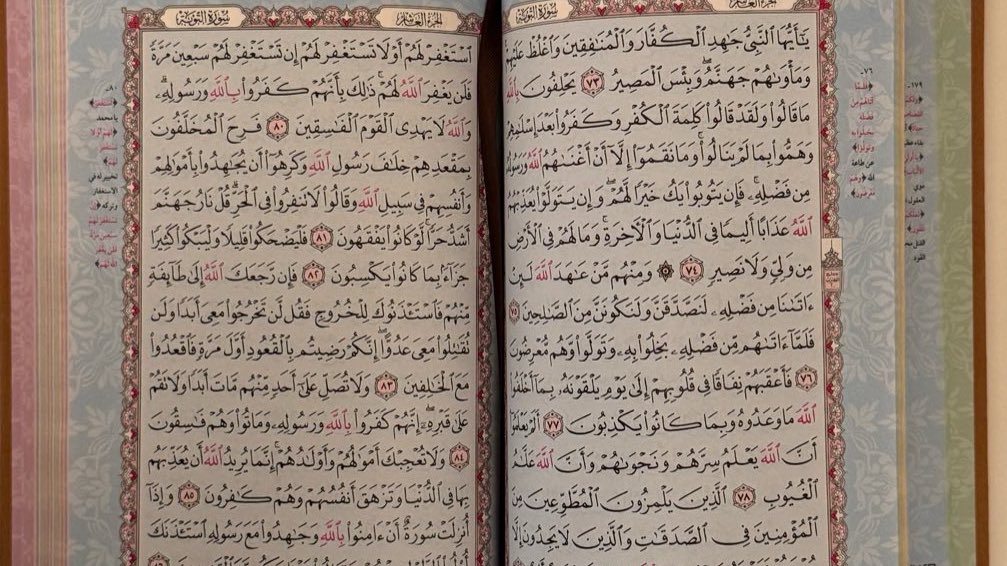 سُورَةُ التَّوۡبَةِ
الجُزۡءُ العَاشِرُ
يَٰٓأَيُّهَا ٱلنَّبِيُّ جَٰهِدِ ٱلۡكُفَّارَ وَٱلۡمُنَٰفِقِينَ وَٱغۡلُظۡ عَلَيۡهِمۡۚ
وَمَأۡوَىٰهُمۡ جَهَنَّمُۖ وَبِئۡسَ ٱلۡمَصِيرُ ٧٣ يَحۡلِفُونَ بِٱللَّهِ
مَا قَالُواْ وَلَقَدۡ قَالُواْ كَلِمَةَ ٱلۡكُفۡرِ وَكَفَرُواْ بَعۡدَ إِسۡلَٰمِهِمۡ
وَهَمُّواْ بِمَا لَمۡ يَنَالُواْۚ وَمَا نَقَمُوٓاْ إِلَّآ أَنۡ أَغۡنَىٰهُمُ ٱللَّهُ وَرَسُولُهُۥ
مِن فَضۡلِهِۦۚ فَإِن يَتُوبُواْ يَكُ خَيۡرٗا لَّهُمۡۖ وَإِن يَتَوَلَّوۡاْ يُعَذِّبۡهُمُ
ٱللَّهُ عَذَابًا أَلِيمٗا فِي ٱلدُّنۡيَا وَٱلۡأٓخِرَةِۚ وَمَا لَهُمۡ فِي ٱلۡأَرۡضِ
مِن وَلِيّٖ وَلَا نَصِيرٖ ٧٤ ۞ وَمِنۡهُم مَّنۡ عَٰهَدَ ٱللَّهَ لَئِنۡ
ءَاتَىٰنَا مِن فَضۡلِهِۦ لَنَصَّدَّقَنَّ وَلَنَكُونَنَّ مِنَ ٱلصَّٰلِحِينَ ٧٥
فَلَمَّآ ءَاتَىٰهُم مِّن فَضۡلِهِۦ بَخِلُواْ بِهِۦ وَتَوَلَّواْ وَّهُم مُّعۡرِضُونَ
٧٦ فَأَعۡقَبَهُمۡ نِفَاقٗا فِي قُلُوبِهِمۡ إِلَىٰ يَوۡمِ يَلۡقَوۡنَهُۥ بِمَآ أَخۡلَفُواْ
ٱللَّهَ مَا وَعَدُوهُ وَبِمَا كَانُواْ يَكۡذِبُونَ ٧٧ أَلَمۡ يَعۡلَمُوٓاْ
أَنَّ ٱللَّهَ يَعۡلَمُ سِرَّهُمۡ وَنَجۡوَىٰهُمۡ وَأَنَّ ٱللَّهَ عَلَّٰمُ
ٱلۡغُيُوبِ ٧٨ ٱلَّذِينَ يَلۡمِزُونَ ٱلۡمُطَّوِّعِينَ مِنَ
ٱلۡمُؤۡمِنِينَ فِي ٱلصَّدَقَٰتِ وَٱلَّذِينَ لَا يَجِدُونَ إِلَّا
الجُزۡءُ العَاشِرُ
سُورَةُ التَّوۡبَةِ
ٱسۡتَغۡفِرۡ لَهُمۡ أَوۡ لَا تَسۡتَغۡفِرۡ لَهُمۡ إِن تَسۡتَغۡفِرۡ لَهُمۡ سَبۡعِينَ مَرَّةٗ
فَلَن يَغۡفِرَ ٱللَّهُ لَهُمۡۚ ذَٰلِكَ بِأَنَّهُمۡ كَفَرُواْ بِٱللَّهِ وَرَسُولِهِۦۗ
وَٱللَّهُ لَا يَهۡدِي ٱلۡقَوۡمَ ٱلۡفَٰسِقِينَ ٨٠ فَرِحَ ٱلۡمُخَلَّفُونَ
بِمَقۡعَدِهِمۡ خِلَٰفَ رَسُولِ ٱللَّهِ وَكَرِهُوٓاْ أَن يُجَٰهِدُواْ بِأَمۡوَٰلِهِمۡ
وَأَنفُسِهِمۡ فِي سَبِيلِ ٱللَّهِ وَقَالُواْ لَا تَنفِرُواْ فِي ٱلۡحَرِّۗ قُلۡ نَارُ جَهَنَّمَ
أَشَدُّ حَرّٗاۚ لَّوۡ كَانُواْ يَفۡقَهُونَ ٨١ فَلۡيَضۡحَكُواْ قَلِيلٗا وَلۡيَبۡكُواْ كَثِيرٗا
جَزَآءَۢ بِمَا كَانُواْ يَكۡسِبُونَ ٨٢ فَإِن رَّجَعَكَ ٱللَّهُ إِلَىٰ طَآئِفَةٖ
مِّنۡهُمۡ فَٱسۡتَـٔۡذَنُوكَ لِلۡخُرُوجِ فَقُل لَّن تَخۡرُجُواْ مَعِيَ أَبَدٗا وَلَن
تُقَٰتِلُواْ مَعِيَ عَدُوًّاۖ إِنَّكُمۡ رَضِيتُم بِٱلۡقُعُودِ أَوَّلَ مَرَّةٖ فَٱقۡعُدُواْ
مَعَ ٱلۡخَٰلِفِينَ ٨٣ وَلَا تُصَلِّ عَلَىٰٓ أَحَدٖ مِّنۡهُم مَّاتَ أَبَدٗا وَلَا تَقُمۡ
عَلَىٰ قَبۡرِهِۦٓۖ إِنَّهُمۡ كَفَرُواْ بِٱللَّهِ وَرَسُولِهِۦ وَمَاتُواْ وَهُمۡ فَٰسِقُونَ
٨٤ وَلَا تُعۡجِبۡكَ أَمۡوَٰلُهُمۡ وَأَوۡلَٰدُهُمۡۚ إِنَّمَا يُرِيدُ ٱللَّهُ أَن يُعَذِّبَهُم
بِهَا فِي ٱلدُّنۡيَا وَتَزۡهَقَ أَنفُسُهُمۡ وَهُمۡ كَٰفِرُونَ ٨٥ وَإِذَآ
أُنزِلَتۡ سُورَةٌ أَنۡ ءَامِنُواْ بِٱللَّهِ وَجَٰهِدُواْ مَعَ رَسُولِهِ ٱسۡتَـٔۡذَنَكَ